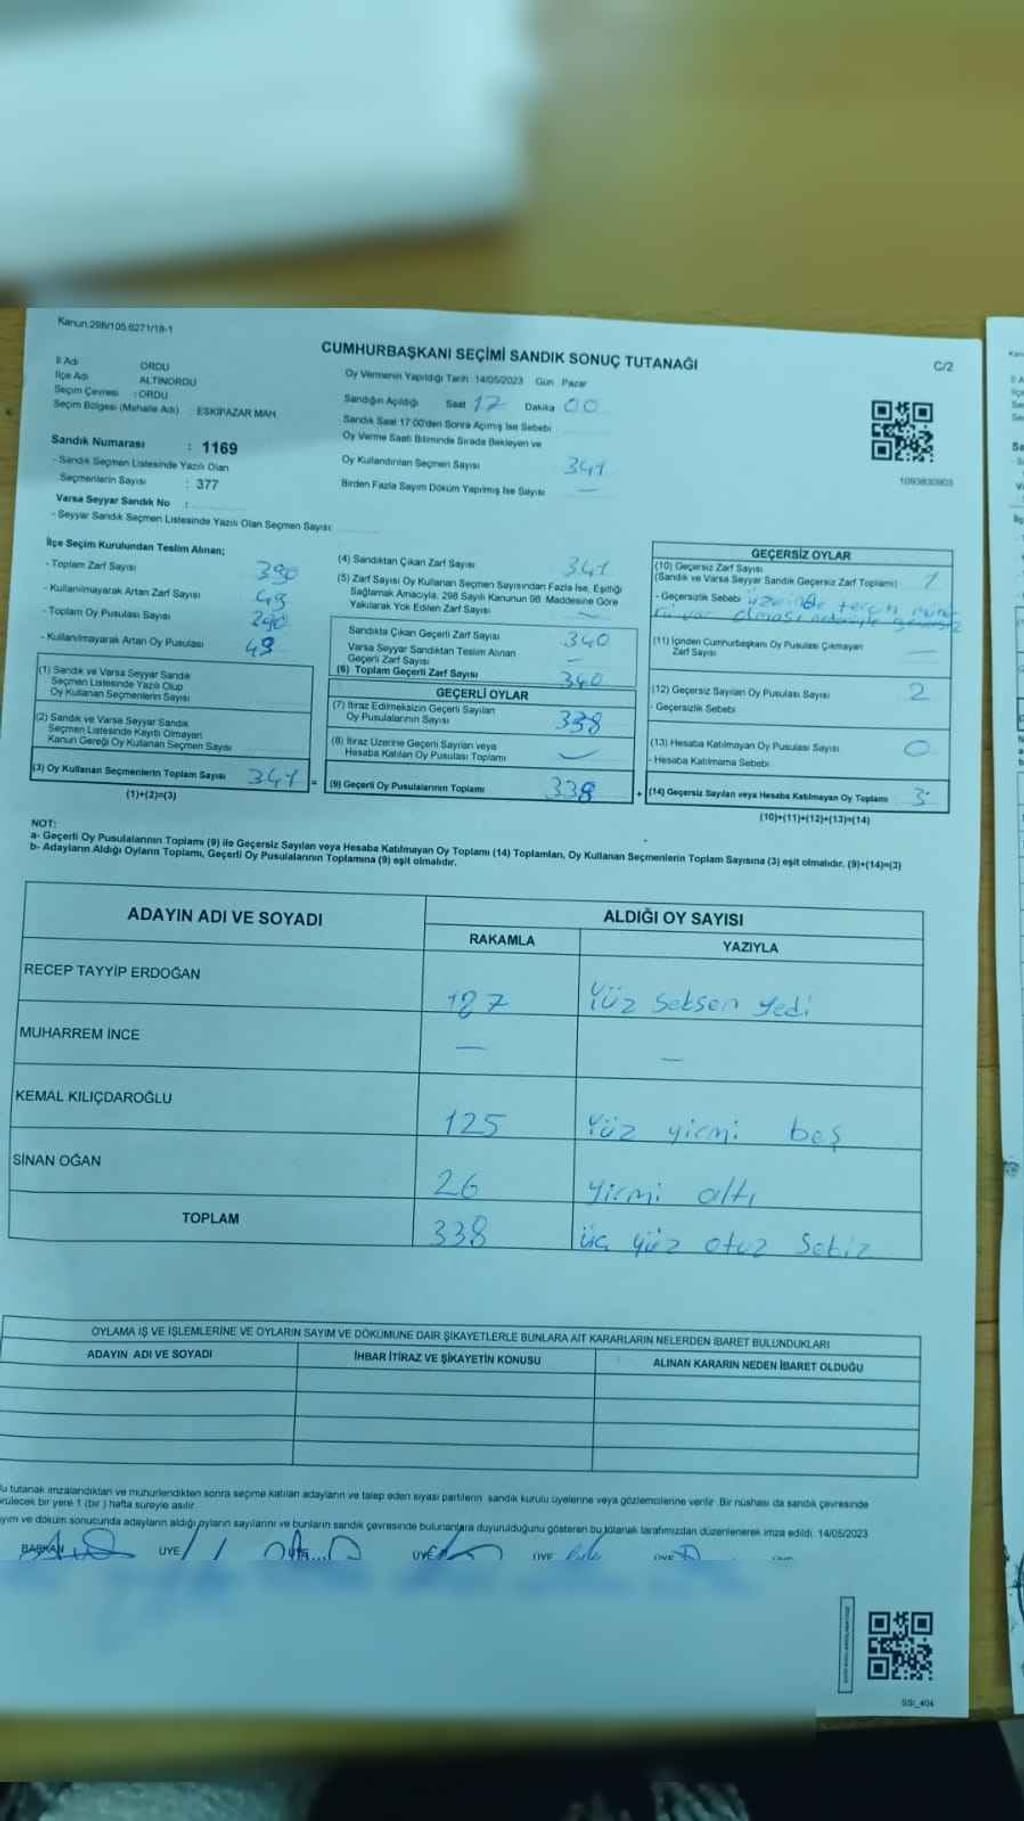 Kanun:298/105.6271/18-1
CUMHURBAŞKANI SEÇİMİ SANDIK SONUÇ TUTANAĞI
C/2
İl Adı ORDU
İlçe Adı ALTINORDU
Seçim Çevresi : ORDU
Seçim Bölgesi (Mahalle Adı) : ESKİPAZAR MAH.
Oy Vermenin Yapıldığı Tarih: 14/05/2023 Gün Pazar
Sandığın Açıldığı Saat 17 Dakika 00
Sandık Saat 17:00'den Sonra Açılmış İse Sebebi
Oy Verme Saati Bitiminde Sırada Bekleyen ve
Oy Kullandırılan Seçmen Sayısı 341
Birden Fazla Sayım Döküm Yapılmış İse Sayısı —
Sandık Numarası : 1169
- Sandık Seçmen Listesinde Yazılı Olan
Seçmenlerin Sayısı : 377
Varsa Seyyar Sandık No :
- Seyyar Sandık Seçmen Listesinde Yazılı Olan Seçmen Sayısı:
1093830903
İlçe Seçim Kurulundan Teslim Alınan;
- Toplam Zarf Sayısı 390
- Kullanılmayarak Artan Zarf Sayısı 49
- Toplam Oy Pusulası Sayısı
- Kullanılmayarak Artan Oy Pusulası 49
(1) Sandık ve Varsa Seyyar Sandık
Seçmen Listesinde Yazılı Olup
Oy Kullanan Seçmenlerin Sayısı
(2) Sandık ve Varsa Seyyar Sandık
Seçmen Listesinde Kayıtlı Olmayan
Kanun Gereği Oy Kullanan Seçmen Sayısı
(3) Oy Kullanan Seçmenlerin Toplam Sayısı 341
(1)+(2)=(3)
=
(4) Sandıktan Çıkan Zarf Sayısı 341
(5) Zarf Sayısı Oy Kullanan Seçmen Sayısından Fazla İse, Eşitliği
Sağlamak Amacıyla, 298 Sayılı Kanunun 98. Maddesine Göre
Yakılarak Yok Edilen Zarf Sayısı —
Sandıkta Çıkan Geçerli Zarf Sayısı 340
Varsa Seyyar Sandıktan Teslim Alınan
Geçerli Zarf Sayısı —
(6) Toplam Geçerli Zarf Sayısı 340
GEÇERLİ OYLAR
(7) İtiraz Edilmeksizin Geçerli Sayılan
Oy Pusulalarının Sayısı 338
(8) İtiraz Üzerine Geçerli Sayılan veya
Hesaba Katılan Oy Pusulası Toplamı —
(9) Geçerli Oy Pusulalarının Toplamı 338
+
GEÇERSİZ OYLAR
(10) Geçersiz Zarf Sayısı
(Sandık ve Varsa Seyyar Sandık Geçersiz Zarf Toplamı) 1
- Geçersizlik Sebebi üzerinde tercih
(11) İçinden Cumhurbaşkanı Oy Pusulası Çıkmayan
Zarf Sayısı —
(12) Geçersiz Sayılan Oy Pusulası Sayısı 2
- Geçersizlik Sebebi
(13) Hesaba Katılmayan Oy Pusulası Sayısı 0
- Hesaba Katılmama Sebebi
(14) Geçersiz Sayılan veya Hesaba Katılmayan Oy Toplamı 3
(10)+(11)+(12)+(13)=(14)
NOT:
a- Geçerli Oy Pusulalarının Toplamı (9) ile Geçersiz Sayılan veya Hesaba Katılmayan Oy Toplamı (14) Toplamları, Oy Kullanan Seçmenlerin Toplam Sayısına (3) eşit olmalıdır. (9)+(14)=(3)
b- Adayların Aldığı Oyların Toplamı, Geçerli Oy Pusulalarının Toplamına (9) eşit olmalıdır.
ADAYIN ADI VE SOYADI
ALDIĞI OY SAYISI
RAKAMLA YAZIYLA
RECEP TAYYİP ERDOĞAN 187 Yüz seksen yedi
MUHARREM İNCE — —
KEMAL KILIÇDAROĞLU 125 Yüz yirmi beş
SİNAN OĞAN 26 yirmi altı
TOPLAM 338 üç yüz otuz sekiz
OYLAMA İŞ VE İŞLEMLERİNE VE OYLARIN SAYIM VE DÖKÜMÜNE DAİR ŞİKAYETLERLE BUNLARA AİT KARARLARIN NELERDEN İBARET BULUNDUKLARI
ADAYIN ADI VE SOYADI İHBAR İTİRAZ VE ŞİKAYETİN KONUSU ALINAN KARARIN NEDEN İBARET OLDUĞU
u tutanak imzalandıktan ve mühürlendikten sonra seçime katılan adayların ve talep eden siyasi partilerin sandık kurulu üyelerine veya gözlemcilerine verilir. Bir nüshası da sandık çevresinde
rülecek bir yere 1 (bir) hafta süreyle asılır.
ayım ve döküm sonucunda adayların aldığı oyların sayılarını ve bunların sandık çevresinde bulunanlara duyurulduğunu gösteren bu tutanak tarafımızdan düzenlenerek imza edildi. 14/05/2023
BAŞKAN ÜYE ÜYE ÜYE ÜYE
SSI_404